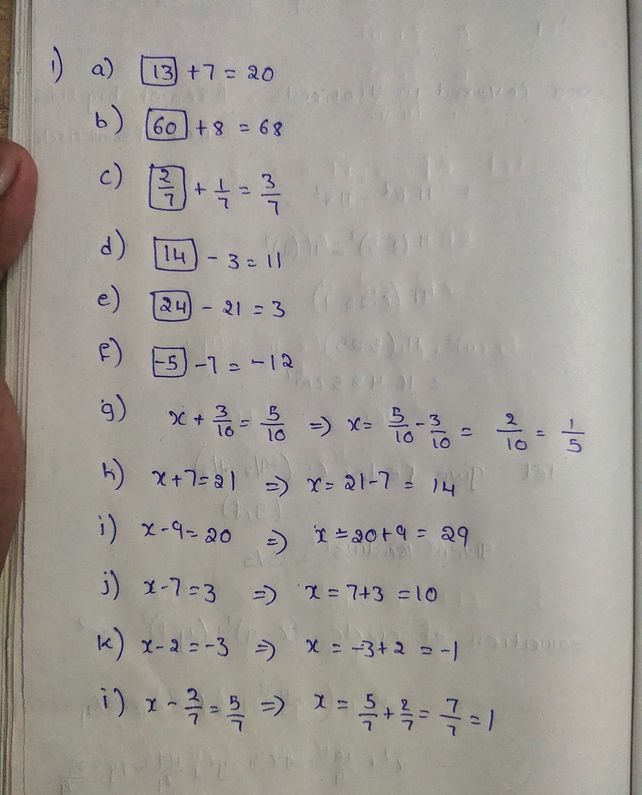 1) a) 13 + 7 = 20
b) 60 + 8 = 68
c) 2/7 + 1/7 = 3/7
d) 14 - 3 = 11
e) 24 - 21 = 3
f) -5 - 7 = -12
g) x + 3/10 = 5/10 ⇒ x = 5/10 - 3/10 = 2/10 = 1/5
h) x + 7 = 21 ⇒ x = 21 - 7 = 14
i) x - 9 = 20 ⇒ x = 20 + 9 = 29
j) x - 7 = 3 ⇒ x = 7 + 3 = 10
k) x - 2 = -3 ⇒ x = -3 + 2 = -1
i) x - 2/7 = 5/7 ⇒ x = 5/7 + 2/7 = 7/7 = 1